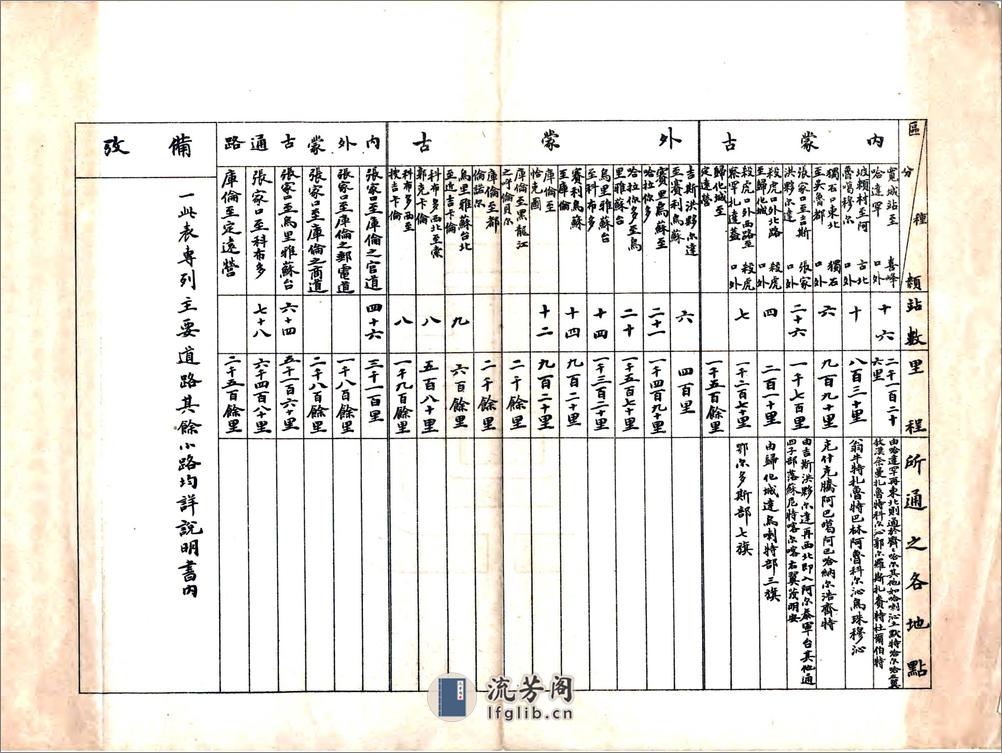 區分 種類 站數 里程 所通之各地點
內蒙古
寬城站至哈達罕 喜峰口外 十六 二千一百二十六里 由哈達罕再東北則通於齊齊哈尔其他如喀喇沁土默特
坡賴村至阿魯噶穆尔 古北口外 十 八百三十里 翁牛特札魯特巴林阿魯科尔沁烏珠穆沁
獨石口東北至奎魯都 獨石口外 六 九百九十里 克什克騰阿巴噶阿巴哈納尔浩齊特
張家口至吉斯洪夥尔達 張家口外 二十六 一千七百里 由吉斯洪夥尔達再西北即入阿尔泰軍台其他通四子部落蘇尼特喀尔喀右翼茂明安
殺虎口外北路至歸化城 殺虎口外 四 二百一十里 由歸化城達烏喇特部三旗
殺虎口外西路至察罕札達蓋 殺虎口外 七 一千二百七十里 鄂尔多斯部七旗
歸化城至定遠營 一千五百餘里
外蒙古
吉斯洪夥尔達至賽利烏蘇 六 四百里
賽里烏蘇至哈拉你多 二十一 一千四百九十里
哈拉你多至烏里雅蘇台 二十 一千五百七十里
烏里雅蘇台至科布多 十四 一千三百二十里
賽利烏蘇至庫倫 十四 九百二十里
庫倫至恰克圖 十二 九百二十里
庫倫至黑龍江之呼倫貝尔 二千餘里
庫倫至都倫諾尔 二千餘里
烏里雅蘇台北至近吉卡倫 九 六百餘里
科布多西北至索郭克卡倫 八 五百八十里
科布多西至搜吉卡倫 八 一千九百里
內外蒙古通路
張家口至庫倫之官道 四十六 三千一百里
張家口至庫倫之郵電道 一千八百里
張家口至庫倫之商道 二千八百里
張家口至烏里雅蘇台 六十四 五千一百六十里
張家口至科布多 七十八 六千四百八十里
庫倫至定遠營 二千五百餘里
備攷
一此表專列主要道路其餘小路均詳說明書內
流芳阁
lfglib.cn